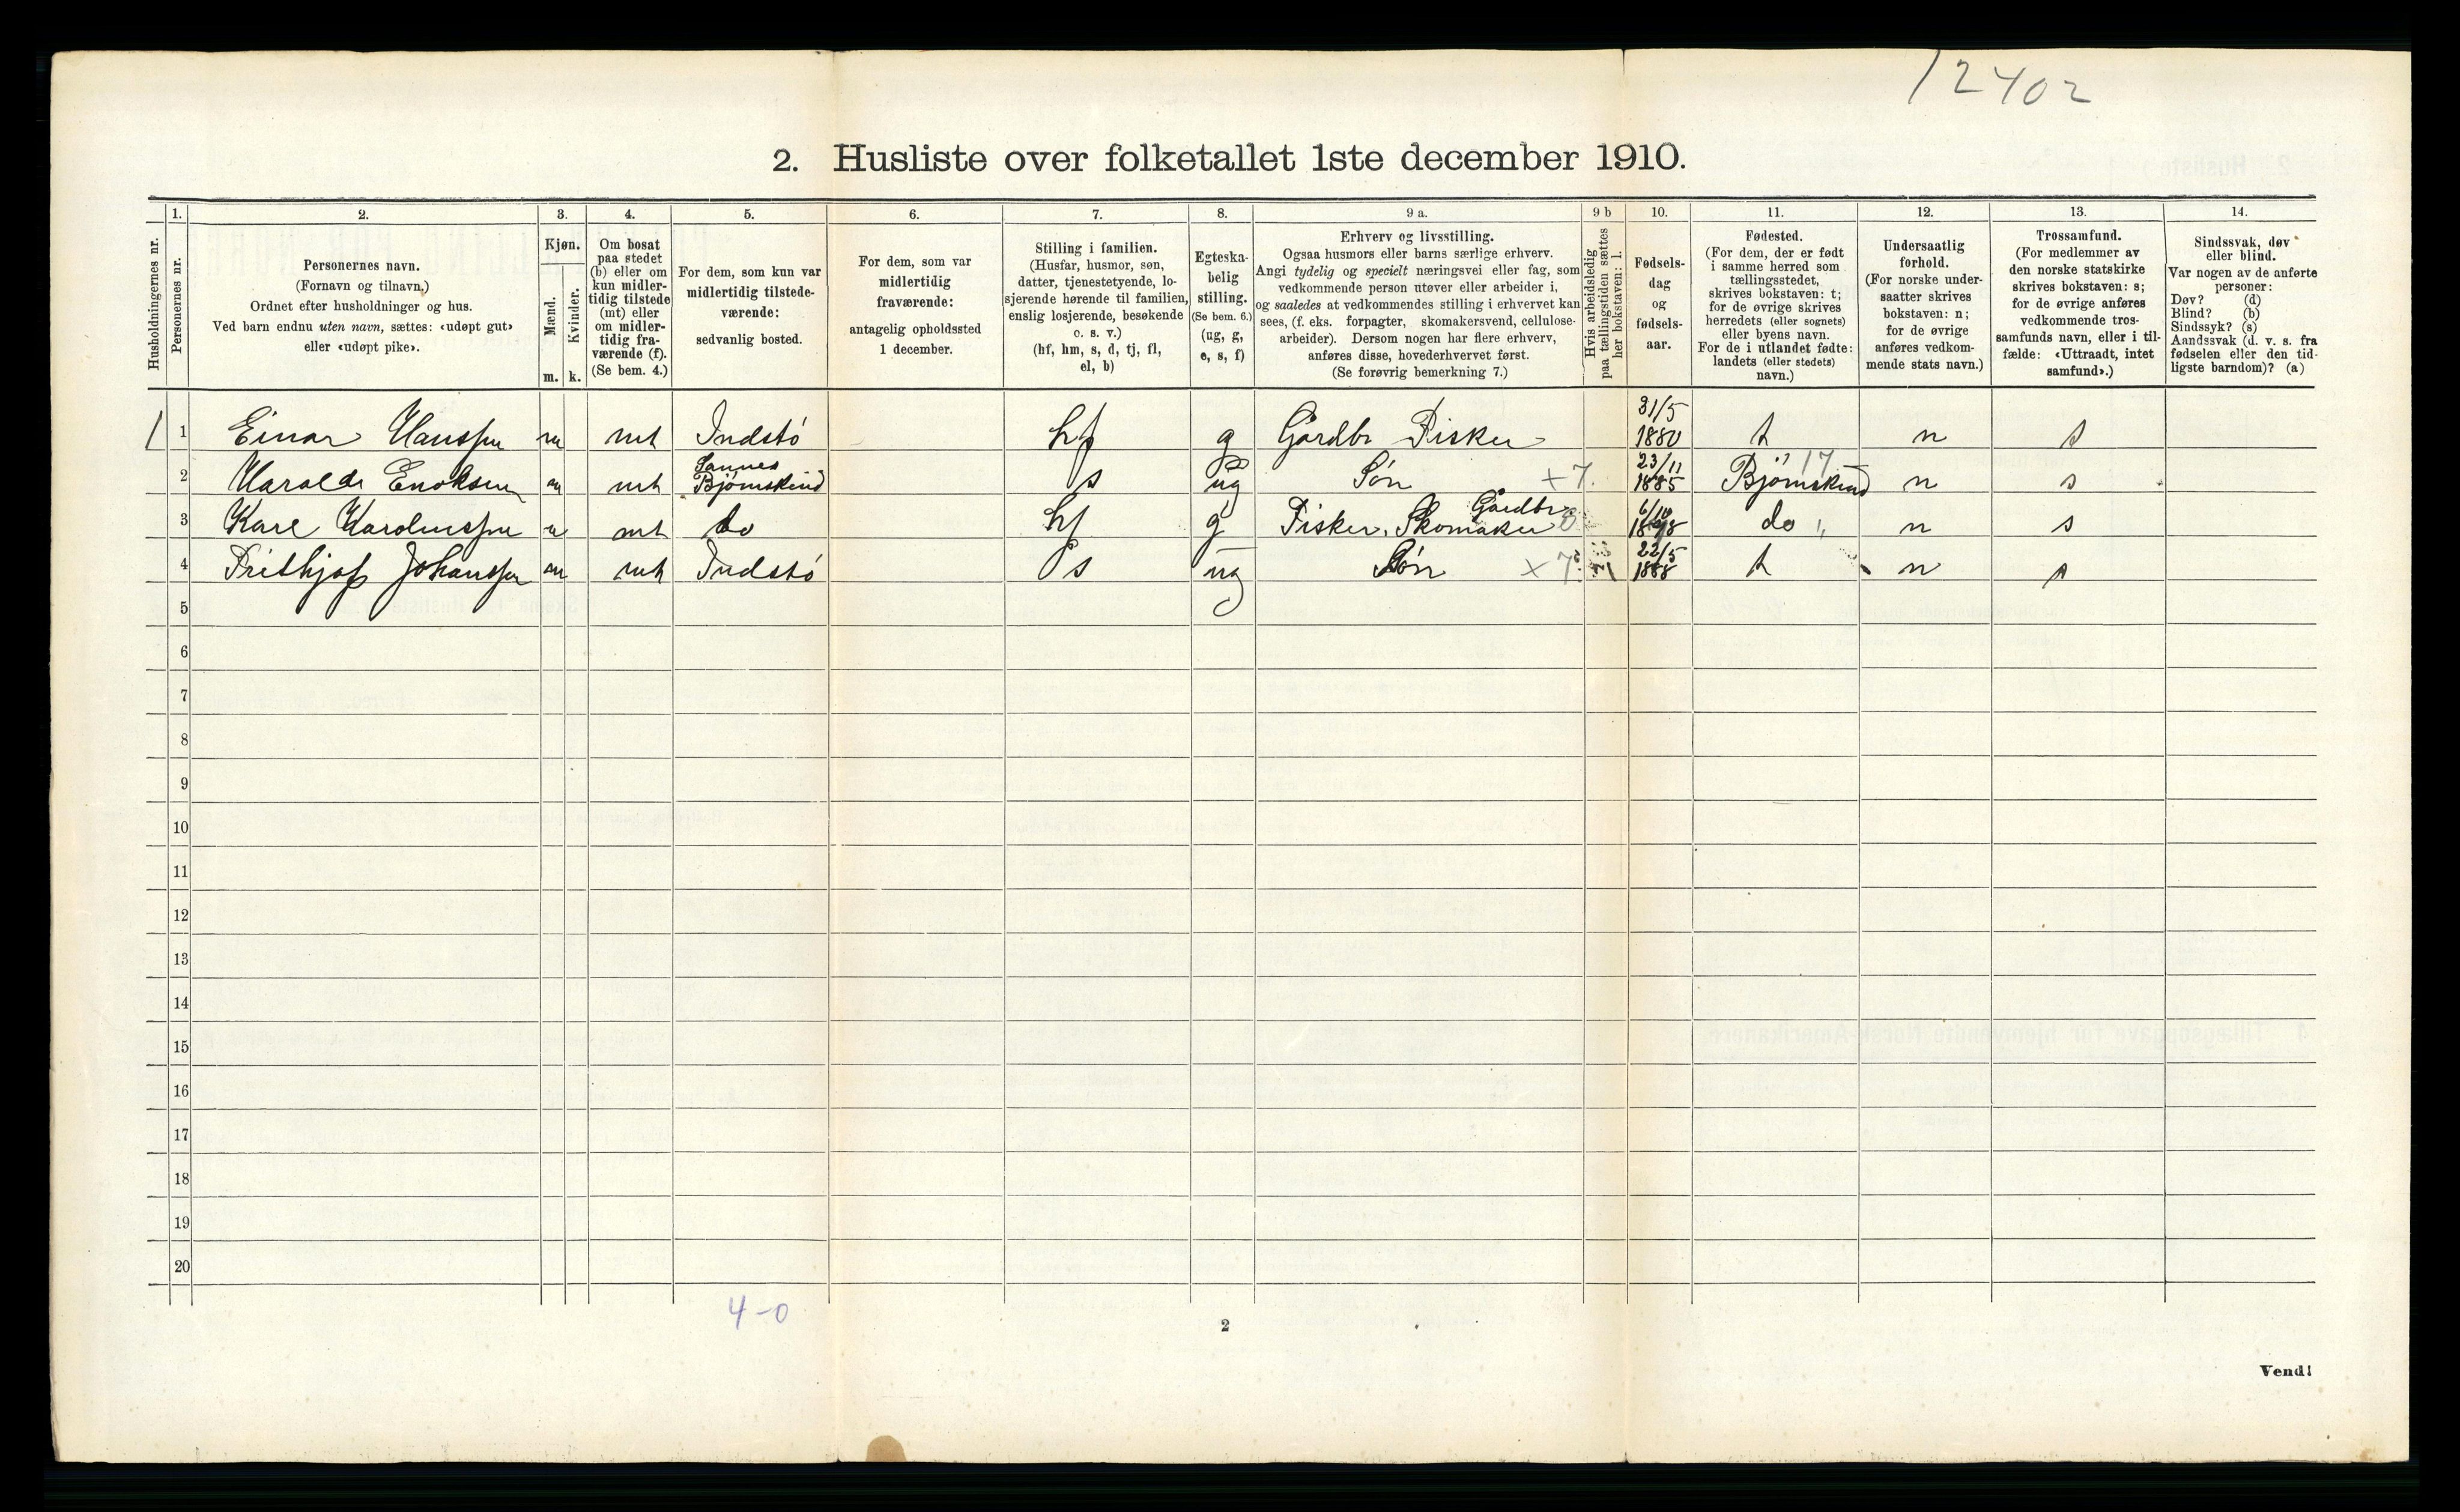 12402
2. Husliste over folketallet 1ste december 1910.
Husholdningernes nr.
1. Personernes nr.
2. Personernes navn.
(Fornavn og tilnavn.)
Ordnet efter husholdninger og hus.
Ved barn endnu uten navn, sættes: «udøpt gut»
eller «udøpt pike».
3. Kjøn.
Mænd. m.
Kvinder. k.
4. Om bosat
paa stedet
(b) eller om
kun midler-
tidig tilstede
(mt) eller
om midler-
tidig fra-
værende (f).
(Se bem. 4.)
5. For dem, som kun var
midlertidig tilstede-
værende:
sedvanlig bosted.
6. For dem, som var
midlertidig
fraværende:
antagelig opholdssted
1 december.
7. Stilling i familien.
(Husfar, husmor, søn,
datter, tjenestetyende, lo-
sjerende hørende til familien,
enslig losjerende, besøkende
o. s. v.)
(hf, hm, s, d, tj, fl,
el, b)
8. Egteska-
belig
stilling.
(Se bem. 6.)
(ug, g,
e, s, f)
9 a. Erhverv og livsstilling.
Ogsaa husmors eller barns særlige erhverv.
Angi tydelig og specielt næringsvei eller fag, som
vedkommende person utøver eller arbeider i,
og saaledes at vedkommendes stilling i erhvervet kan
sees, (f. eks. forpagter, skomakersvend, cellulose-
arbeider). Dersom nogen har flere erhverv,
anføres disse, hovederhvervet først.
(Se forøvrig bemerkning 7.)
9 b Hvis arbeidsledig
paa tællingstiden sættes
her bokstaven: l.
10. Fødsels-
dag
og
fødsels-
aar.
11. Fødested.
(For dem, der er født
i samme herred som
tællingsstedet,
skrives bokstaven: t;
for de øvrige skrives
herredets (eller sognets)
eller byens navn.
For de i utlandet fødte:
landets (eller stedets)
navn.)
12. Undersaatlig
forhold.
(For norske under-
saatter skrives
bokstaven: n;
for de øvrige
anføres vedkom-
mende stats navn.)
13. Trossamfund.
(For medlemmer av
den norske statskirke
skrives bokstaven: s;
for de øvrige anføres
vedkommende tros-
samfunds navn, eller i til-
fælde: «Uttraadt, intet
samfund».)
14. Sindssvak, døv
eller blind.
Var nogen av de anførte
personer:
Døv? (d)
Blind? (b)
Sindssyk? (s)
Aandssvak (d. v. s. fra
fødselen eller den tid-
ligste barndom)? (a)
1 1 Einar Hanssen m mt Indstö hf g Gårdbr Fisker 31/5 1880 t n s
2 Harald Enoksen m mt Sannes Bjørnskind s ug Søn +7. 23/11 1885 Bjørnskind 17 n s
3 Karl Karolinssen m mt do hf g Fisker, Skomaker Gårdbr 6/10 do " n s
4 Frithjof Johanssen m mt Indstö s ug Søn x7 22/5 1888 t n s
5
6
7
8
9
10
11
12
13
14
15
16
17
18
19
20
4-0
2
Vend!